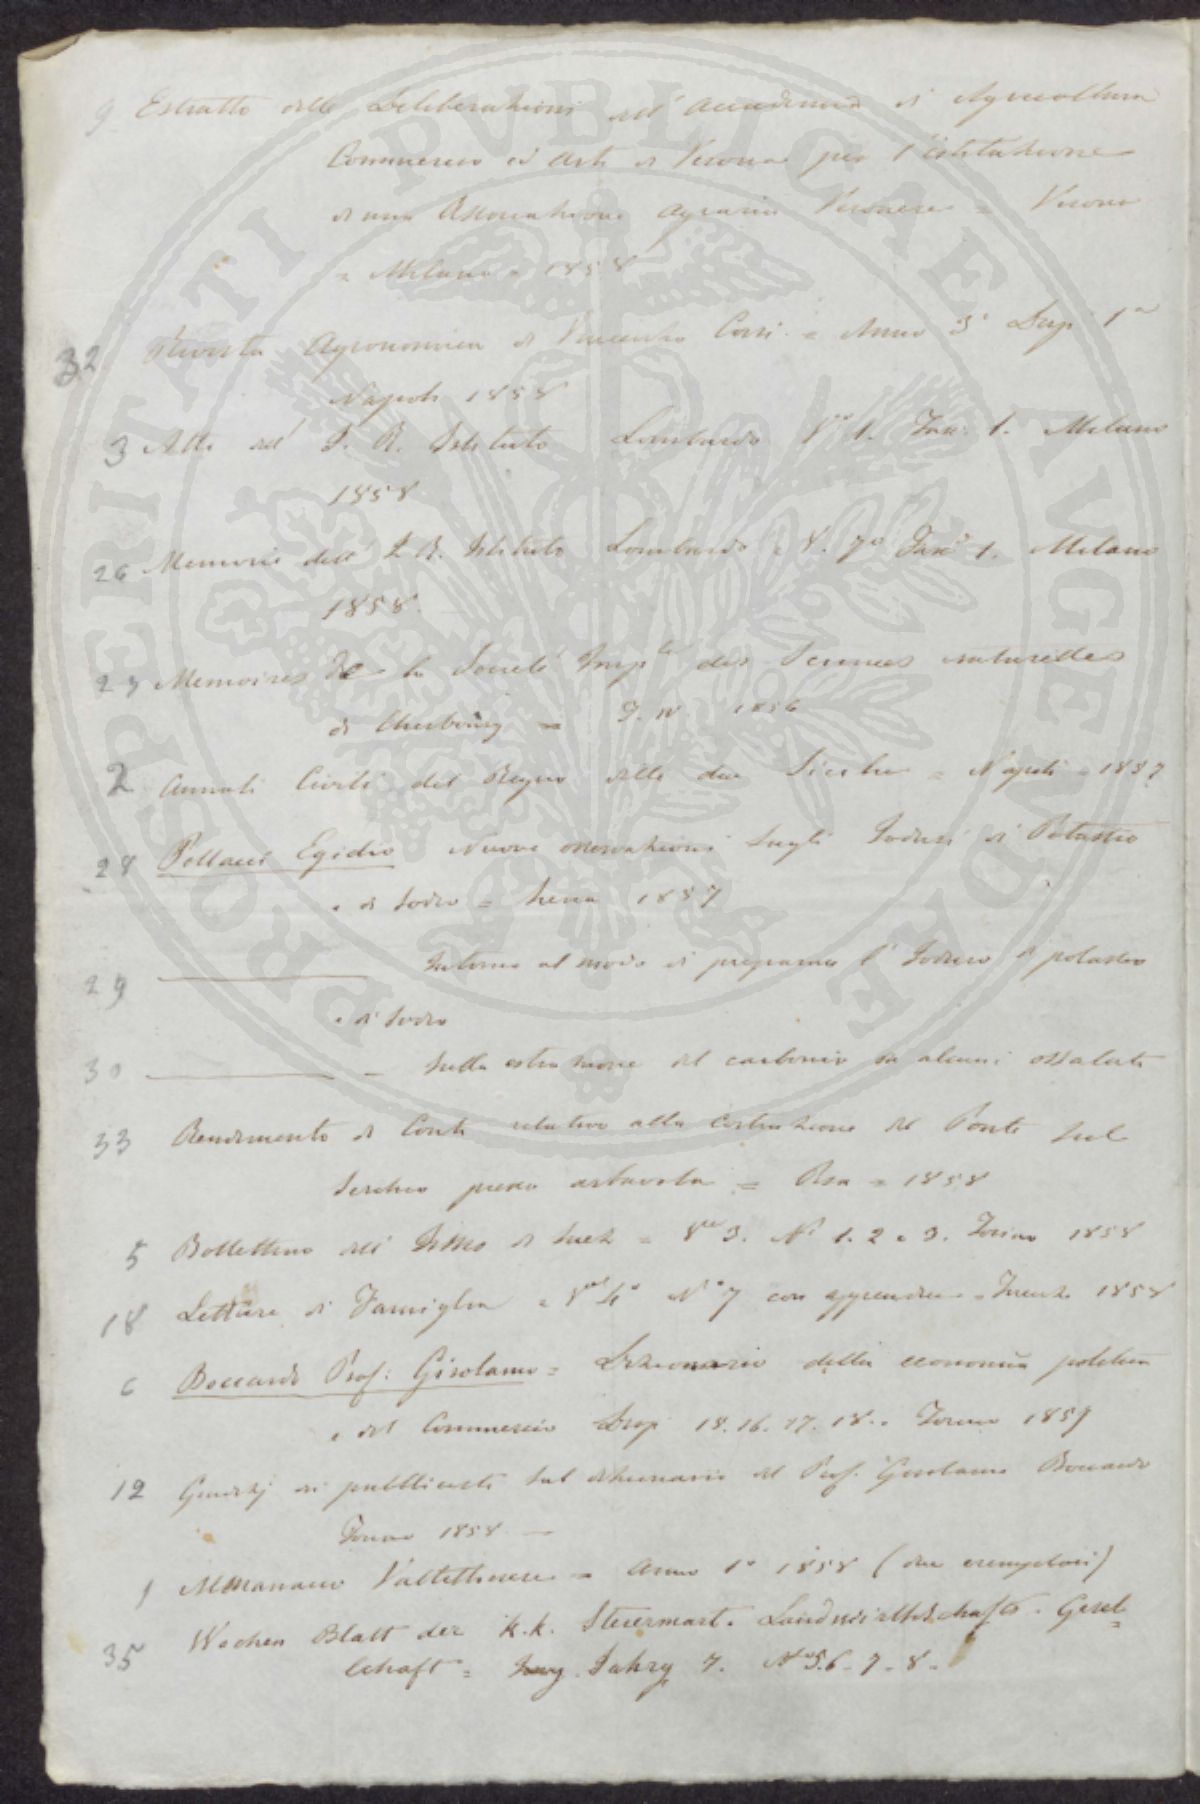 9 Estratto delle Deliberazioni dell' Accademia di Agricoltura
Commercio ed Arti di Verona per l'istituzione
di una Associazione agraria Veronese = Verona
= Milano = 1858
32 Rivista Agronomica di Vincenzo Corsi = Anno 3° Disp. 1a
Napoli 1858
3 Atti dell' I. R. Istituto Lombardo Vo 1. Fasc. 1. Milano
1858
26 Memorie dell' I. R. Istituto Lombardo = V. 7° Fasco 1. Milano
1858.
27 Memoires De la Société Imple des Sciences naturelles
di Cherbourg = T. IV 1856
2 Annali Civili del Regno delle due Sicilie = Napoli = 1857
28 Pollacci Egidio Nuove osservazioni sugli Joduri di Potassio
e di Sodio = Siena 1857
29 Intorno al modo di preparare l' Joduro di potassio
e di Sodio
30 Sulla estrazione del carbonio da alcuni ossalati
33 Rendimento di Conti relativo alla costruzione del Ponte sul
Serchio presso = Pisa = 1858
5 Bollettino dell' Istmo di Suez = Vo 3. N. 1. 2 e 3. Torino 1858
18 Letture di Famiglia = Vol 4° N° 7 con appendice = Trieste 1858
6 Boccardo Prof: Girolamo = Dizionario della economia politica
e del Commercio Disp. 15. 16. 17. 18. = Torino 1857
12 Giudizj pubblicati sul dizionario del Prof. Girolamo Boccardo
Torino 1858 —
1 Almanacco Valtellinese = Anno 1° 1858 (due esemplari)
35 Wochen Blatt der k.k. Steiermark. Landwirthschafts. Gesel=
lschaft = Jahrg 7. No 5. 6 - 7 - 8 =
PROSPERITATI PUBLICAE AUGENDAE